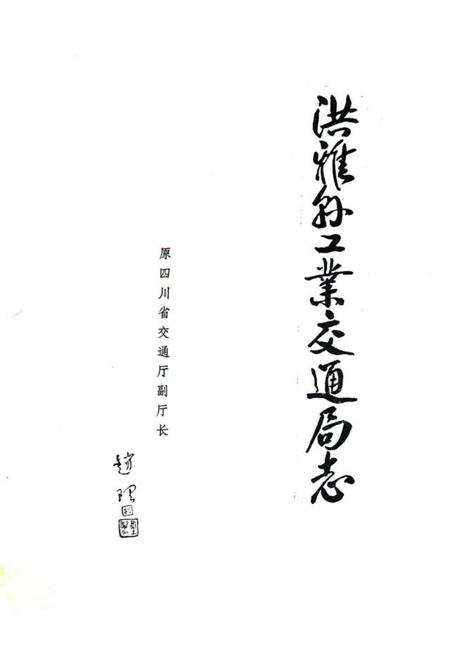 洪雅县工業交通局志
原四川省交通厅副厅长
趙理